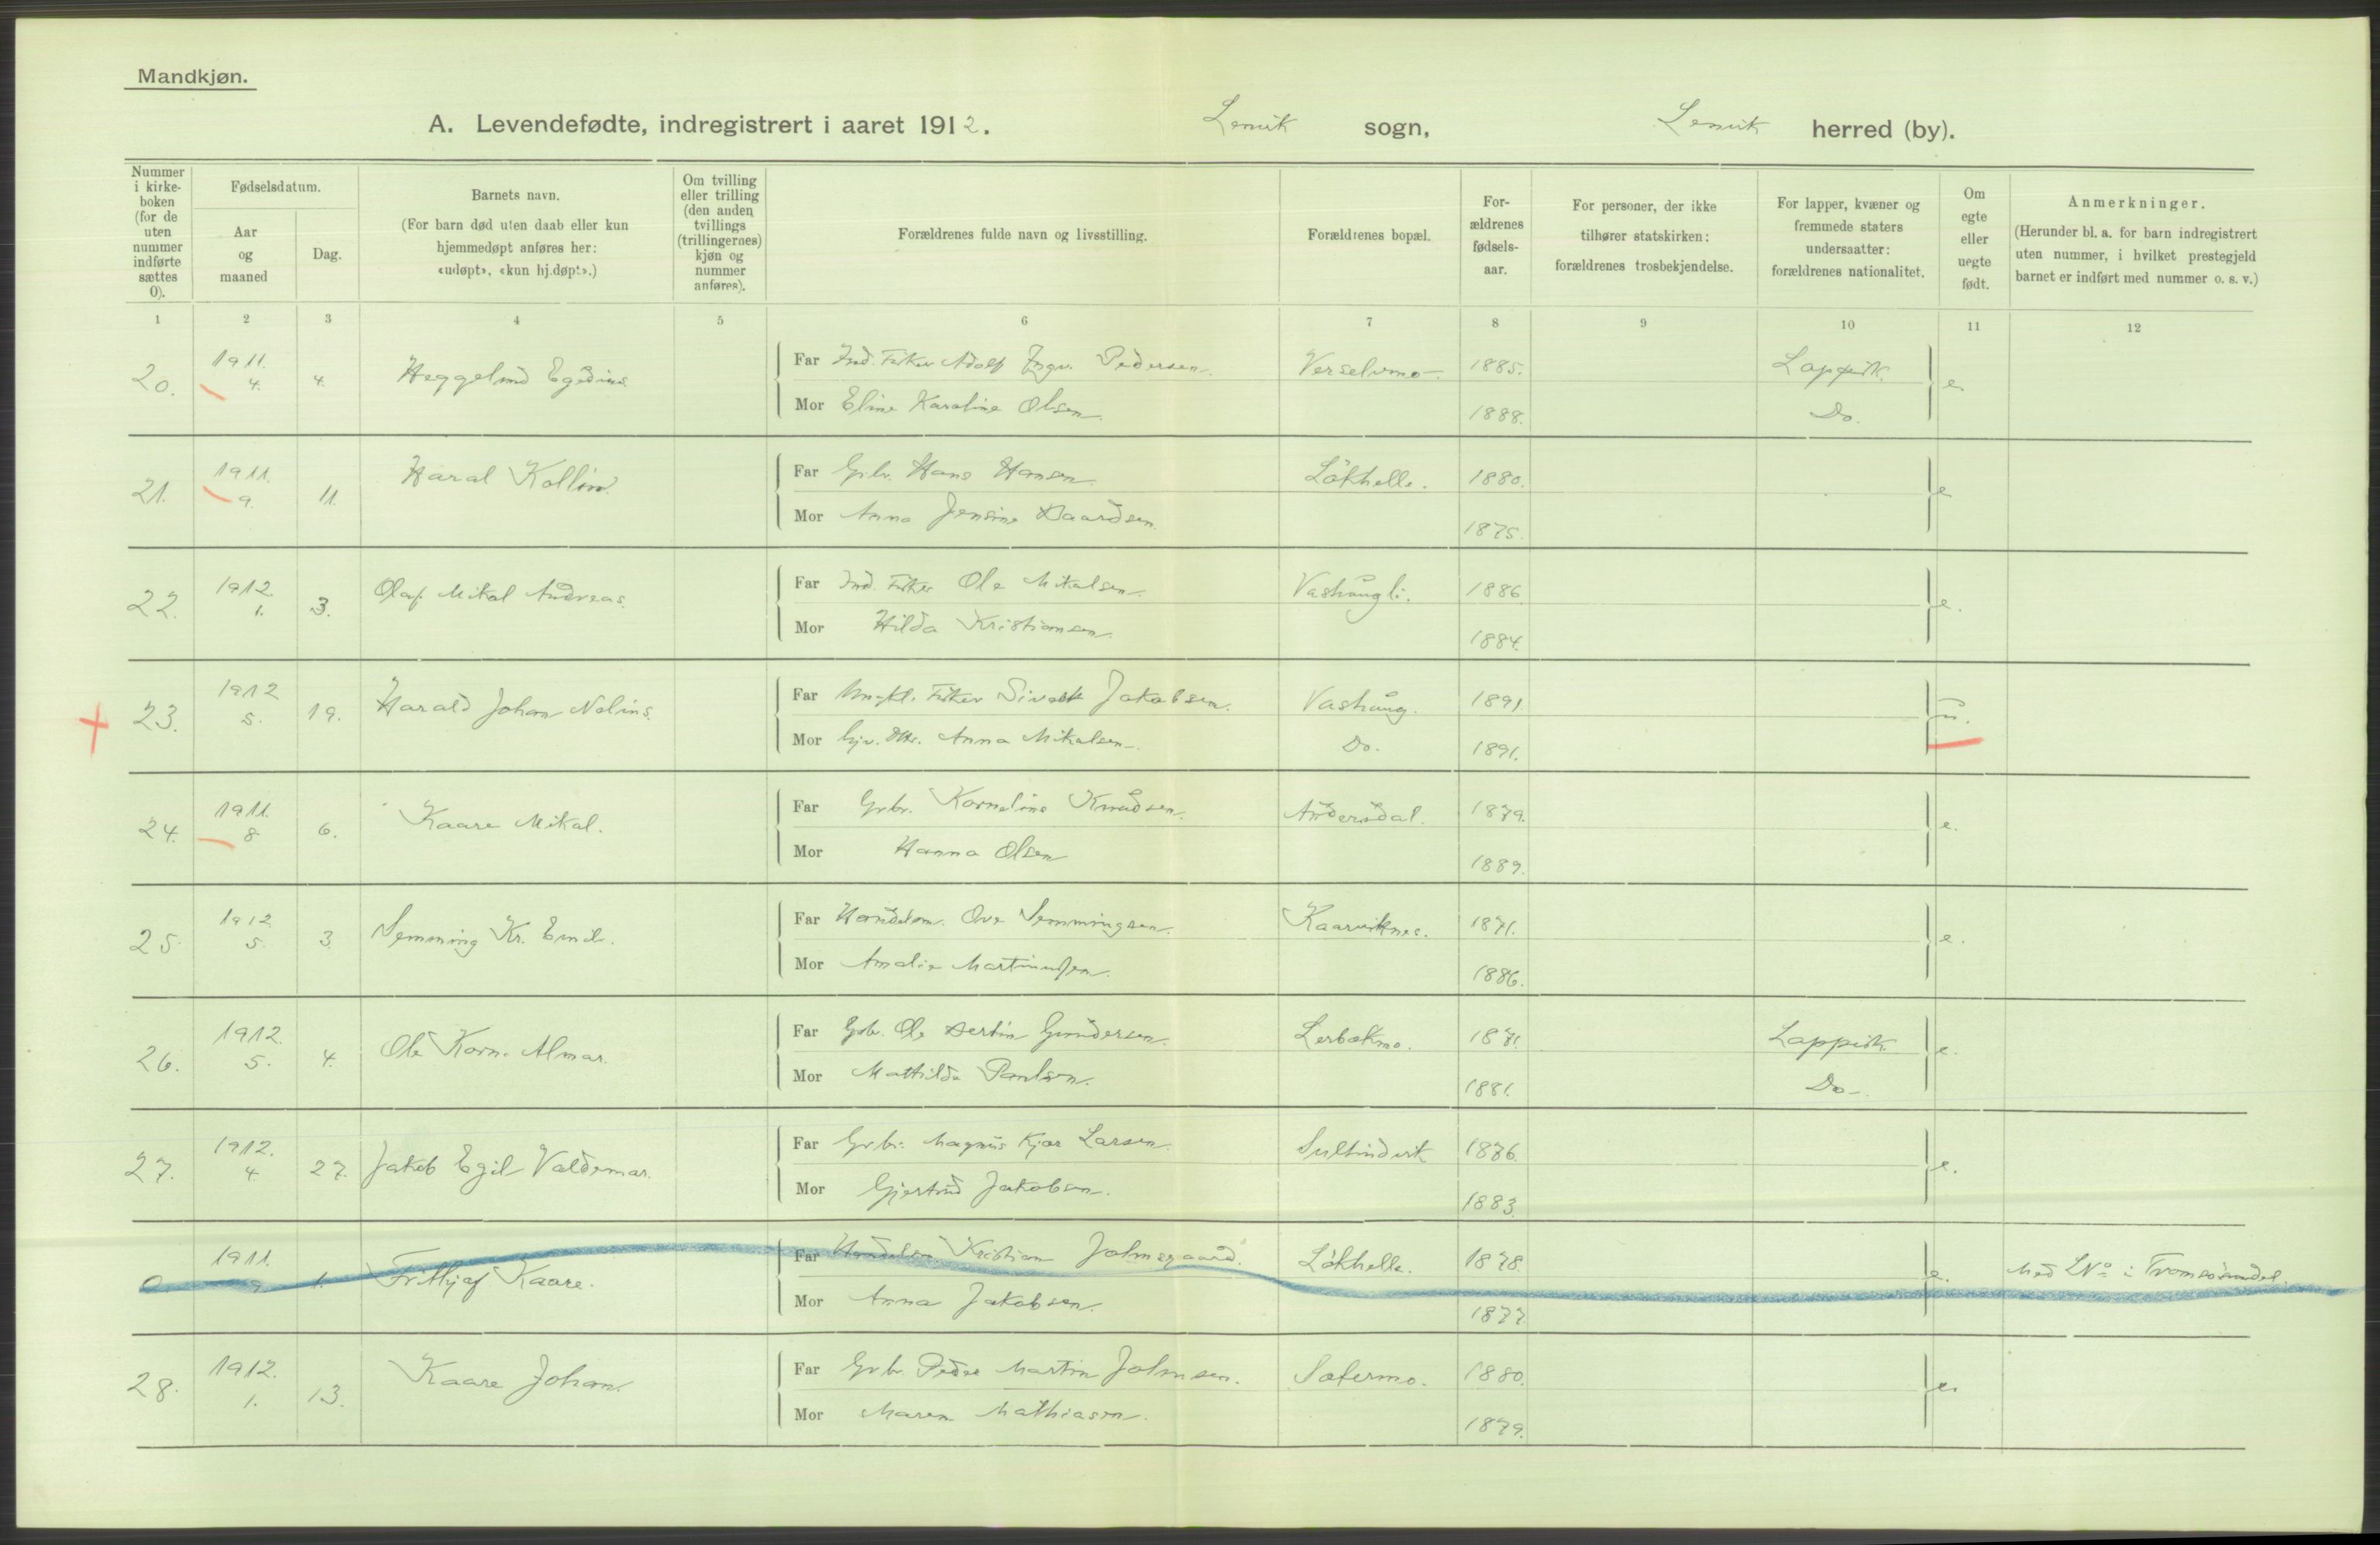 Mandkjøn.
A. Levendefødte, indregistrert i aaret 1912. Lenvik sogn, Lenvik herred (by).
Nummer i kirke-boken (for de uten nummer indførte sættes 0).
Fødselsdatum.
Aar og maaned
Dag.
Barnets navn.
(For barn død uten daab eller kun hjemmedøpt anføres her: «udøpt», «kun hj.døpt».)
Om tvilling eller trilling (den anden tvillings (trillingernes) kjøn og nummer anføres).
Forældrenes fulde navn og livsstilling.
Forældrenes bopæl.
For-ældrenes fødsels-aar.
For personer, der ikke tilhører statskirken: forældrenes trosbekjendelse.
For lapper, kvæner og fremmede staters undersaatter: forældrenes nationalitet.
Om egte eller uegte født.
Anmerkninger.
(Herunder bl. a. for barn indregistrert uten nummer, i hvilket prestegjeld barnet er indført med nummer o. s. v.)
1 2 3 4 5 6 7 8 9 10 11 12
20. 1911. 4. 4. Heggelund Egedius. Far Ind. Fisker Adolf Ingv. Pedersen. Verselvmo. 1885. Lappisk. e.
Mor Eline Karoline Olsen. 1888. Do.
21. 1911. 9. 11. Haral Kollin. Far Grbr. Hans Hansen. Lökhelle. 1880. e
Mor Anna Jensine Daardsen. 1875.
22. 1912. 1. 3. Olaf Mikal Andreas. Far Ind. Fisker Ole Mikalsen. Vashaugli. 1886. e.
Mor Hilda Kristiansen. 1884.
23. 1912 5. 19. Harald Johan Nelius. Far Ungkl. Fisker Sivert Jakobsen. Vashaug. 1891 u.
Mor hjv. Dtr. Anna Mikalsen. Do. 1891.
24. 1911. 8 6. Kaare Mikal. Far Grbr. Kornelius Knudsen. Andersdal. 1879. e.
Mor Hanna Olsen 1889.
25. 1912 5. 3. Semming Kr. Emil. Far Handelsm. Ove Semmingsen. Kaarviknes. 1871. e.
Mor Amalie Martinussen. 1886.
26. 1912. 5. 4. Ole Korn. Almar. Far Grbr. Ole Bertin Gundersen. Lerbakmo. 1871. Lappisk. e.
Mor Mathilde Paulsen. 1881. Do.
27. 1912. 4. 27. Jakob Egil Valdemar. Far Grbr. Magnus Kjær Larsen. Sultindvik 1876. e.
Mor Gjertrud Jakobsen. 1883.
0 1911. 9. 1. Frithjof Kaare. Far Handelsm. Kristian Johnsgaard. Lökhelle. 1878. e. Med No i Tromsøsundet.
Mor Anna Jakobsen. 1877.
28. 1912. 1. 13. Kaare Johan. Far Grbr. Peder Martin Johnsen. Sætermo. 1880. e.
Mor Maren Mathiasen. 1879.